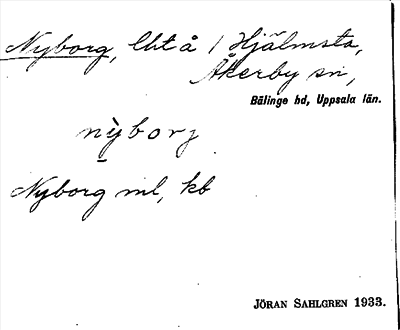 Nyborg, lht å / Hjälmsta,
Åkerby sn,
Bälinge hd, Uppsala län.
nỳborj
Nyborg ml, kb
JÖRAN SAHLGREN 1933.